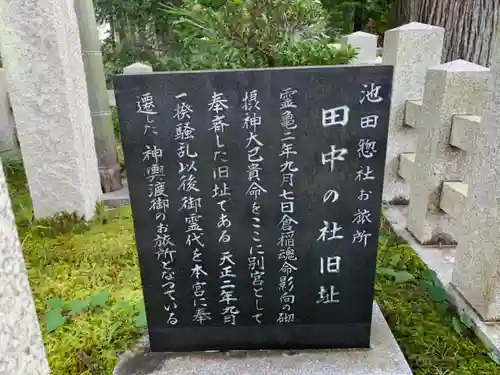 池田惣社お旅所
田中の社旧址
霊亀二年九月七日倉稲魂命影向の砌
摂神大己貴命をここに別宮として
奉斎した旧址である 天正二年九月
一揆騒乱以後御霊代を本宮に奉
遷した 神輿渡御のお旅所となっている